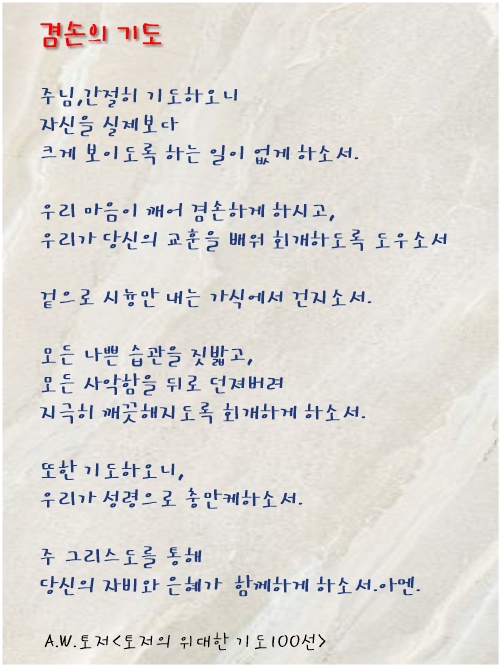 겸손의 기도
주님,간절히 기도하오니
자신을 실제보다
크게 보이도록 하는 일이 없게 하소서.
우리 마음이 깨어 겸손하게 하시고,
우리가 당신의 교훈을 배워 회개하도록 도우소서
겉으로 시늉만 내는 가식에서 건지소서.
모든 나쁜 습관을 짓밟고,
모든 사악함을 뒤로 던져버려
지극히 깨끗해지도록 회개하게 하소서.
또한 기도하오니,
우리가 성령으로 충만케하소서.
주 그리스도를 통해
당신의 자비와 은혜가 함께하게 하소서.아멘.
A.W.토저<토저의 위대한 기도100선>